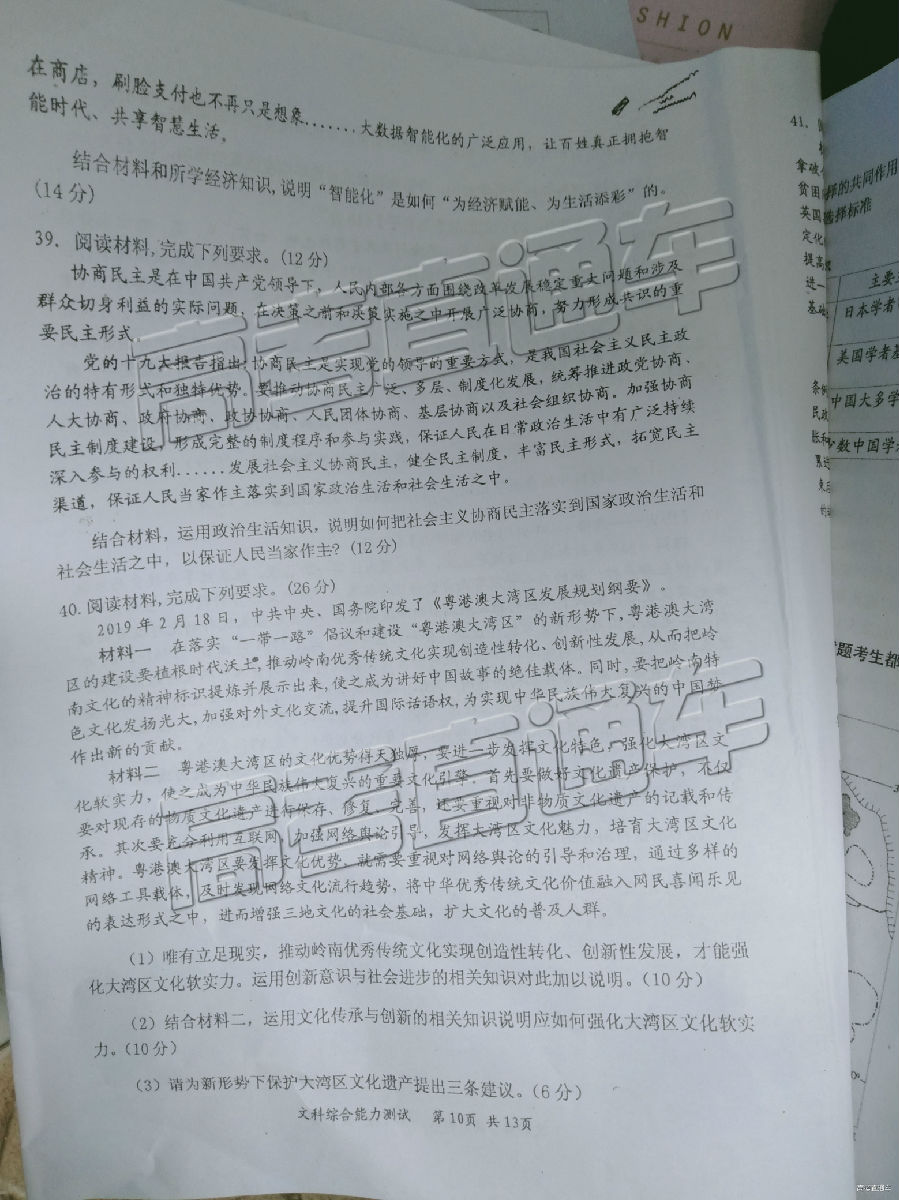 SHION
在商店，刷脸支付也不再只是想象.......大数据智能化的广泛应用，让百姓真正拥抱智
能时代、共享智慧生活。
结合材料和所学经济知识,说明“智能化”是如何“为经济赋能、为生活添彩”的。
(14分)
39. 阅读材料,完成下列要求。(12分)
协商民主是在中国共产党领导下，人民内部各方面围绕改革发展稳定重大问题和涉及
群众切身利益的实际问题，在决策之前和决策实施之中开展广泛协商，努力形成共识的重
要民主形式。
党的十九大报告指出:协商民主是实现党的领导的重要方式，是我国社会主义民主政
治的特有形式和独特优势。要推动协商民主广泛、多层、制度化发展，统筹推进政党协商、
人大协商、政府协商、政协协商、人民团体协商、基层协商以及社会组织协商。加强协商
民主制度建设，形成完整的制度程序和参与实践，保证人民在日常政治生活中有广泛持续
深入参与的权利......发展社会主义协商民主，健全民主制度，丰富民主形式，拓宽民主
渠道，保证人民当家作主落实到国家政治生活和社会生活之中。
结合材料，运用政治生活知识，说明如何把社会主义协商民主落实到国家政治生活和
社会生活之中，以保证人民当家作主? (12分)
40. 阅读材料,完成下列要求。(26分)
2019年2月18日，中共中央、国务院印发了《粤港澳大湾区发展规划纲要》。
材料一 在落实“一带一路”倡议和建设“粤港澳大湾区”的新形势下,粤港澳大湾
区的建设要植根时代沃土,推动岭南优秀传统文化实现创造性转化、创新性发展,从而把岭
南文化的精神标识提炼并展示出来,使之成为讲好中国故事的绝佳载体。同时,要把岭南特
色文化发扬光大,加强对外文化交流,提升国际话语权,为实现中华民族伟大复兴的中国梦
作出新的贡献。
材料二 粤港澳大湾区的文化优势得天独厚，要进一步发挥文化特色，强化大湾区文
化软实力，使之成为中华民族伟大复兴的重要文化引擎。首先要做好文化遗产保护，不仅
要对现存的物质文化遗产进行保存、修复、完善，还要重视对非物质文化遗产的记载和传
承。其次要充分利用互联网，加强网络舆论引导，发挥大湾区文化魅力，培育大湾区文化
精神。粤港澳大湾区要发挥文化优势，就需要重视对网络舆论的引导和治理，通过多样的
网络工具载体，及时发现网络文化流行趋势，将中华优秀传统文化价值融入网民喜闻乐见
的表达形式之中，进而增强三地文化的社会基础，扩大文化的普及人群。
(1) 唯有立足现实，推动岭南优秀传统文化实现创造性转化、创新性发展，才能强
化大湾区文化软实力。运用创新意识与社会进步的相关知识对此加以说明。(10分)
(2) 结合材料二，运用文化传承与创新的相关知识说明应如何强化大湾区文化软实
力。(10分)
(3) 请为新形势下保护大湾区文化遗产提出三条建议。(6分)
文科综合能力测试 第10页 共13页
高考直通车
高考直通车
41.
贫困
英国
定化
提高
进一
基础
择的共同作用
选择标准
主要
日本学者
美国学者
中国大多学
数中国学
题考生都
高考直通车